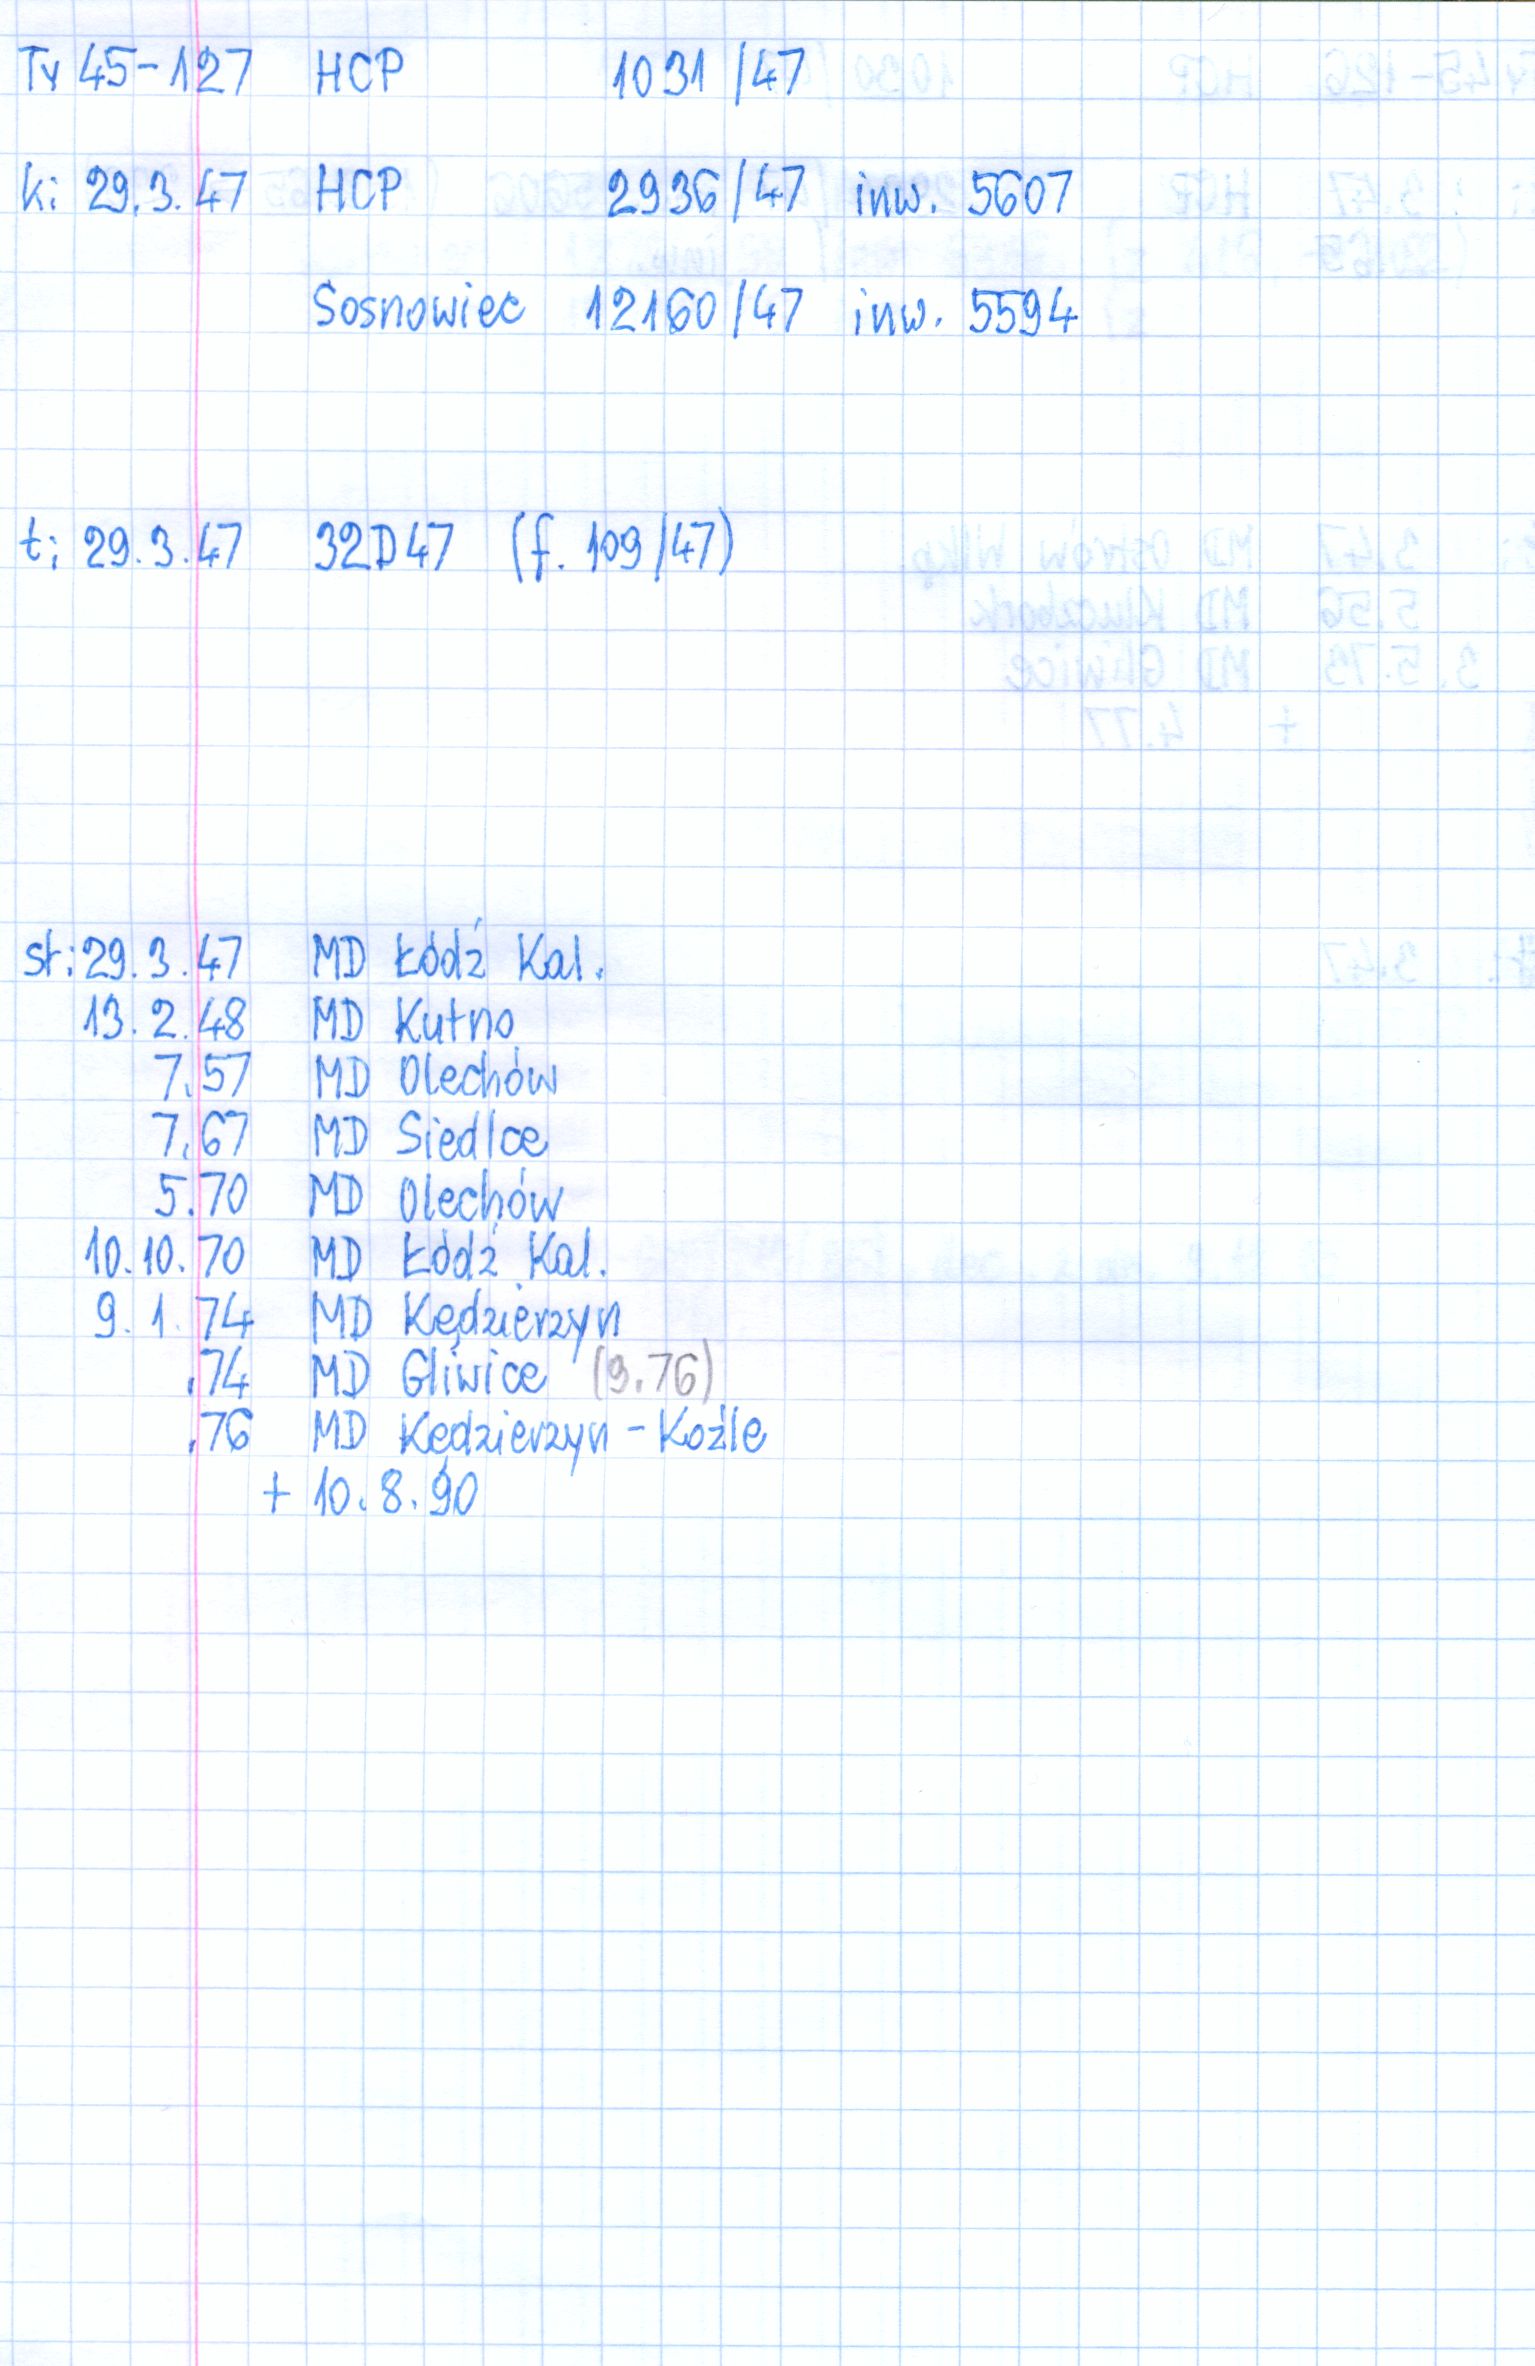 Ty 45-127 HCP 1031/47
k: 29.3.47 HCP 2936/47 inw. 5607
Sosnowiec 12160/47 inw. 5594
t: 29.3.47 32D47 (f. 109/47)
st: 29.3.47 MD Łódź Kal.
13.2.48 MD Kutno
7.57 MD Olechów
7.67 MD Siedlce
5.70 MD Olechów
10.10.70 MD Łódź Kal.
9.1.74 MD Kędzierzyn
.74 MD Gliwice (9.76)
.76 MD Kędzierzyn-Koźle
+ 10.8.90